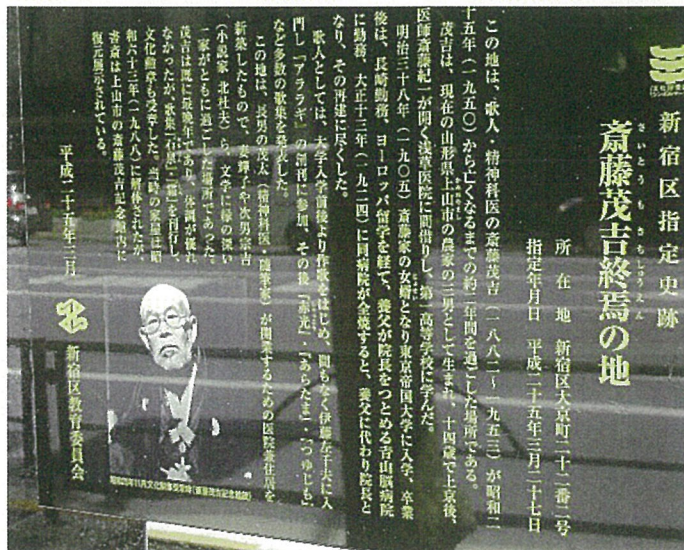 新宿区指定史跡
斎藤茂吉終焉の地
さいとうもきちしゅうえん
所在地 新宿区大京町二十二番二号
指定年月日 平成二十五年三月二十七日
この地は、歌人・精神科医の斎藤茂吉(一八八二~一九五三)が昭和二
十五年(一九五〇)から亡くなるまでの約三年間を過ごした場所である。
茂吉は、現在の山形県上山市の農家の三男として生まれ、十四歳で上京後、
かみのやまし
医師斎藤紀一が開く浅草医院に間借りし、第一高等学校に学んだ。
明治三十八年(一九〇五)斎藤家の女婿となり東京帝国大学に入学、卒業
じょせい
後は、長崎勤務、ヨーロッパ留学を経て、養父が院長をつとめる青山脳病院
に勤務、大正十三年(一九二四)に同病院が全焼すると、養父に代わり院長と
なり、その再建に尽くした。
歌人としては、大学入学前後より作歌をはじめ、間もなく伊藤左千夫に入
門し『アララギ』の創刊に参加、その後『赤光』・『あらたま』・『つゆじも』
など多数の歌集を発表した。
この地は、長男の茂太(精神科医・随筆家)が開業するための医院兼住居を
新築したもので、妻輝子や次男宗吉
(小説家 北杜夫)ら、文学に縁の深い
一家がともに過ごした場所であった。
茂吉は既に最晩年であり、体調が優れ
なかったが、歌集『石泉』・『霜』を刊行し、
文化勲章も受章した。当時の家屋は昭
和六十三年(一九八八)に解体されたが、
書斎は上山市の斎藤茂吉記念館内に
復元展示されている。
平成二十五年三月
新宿区教育委員会
昭和26年11月文化勲章受章時(斎藤茂吉記念館蔵)